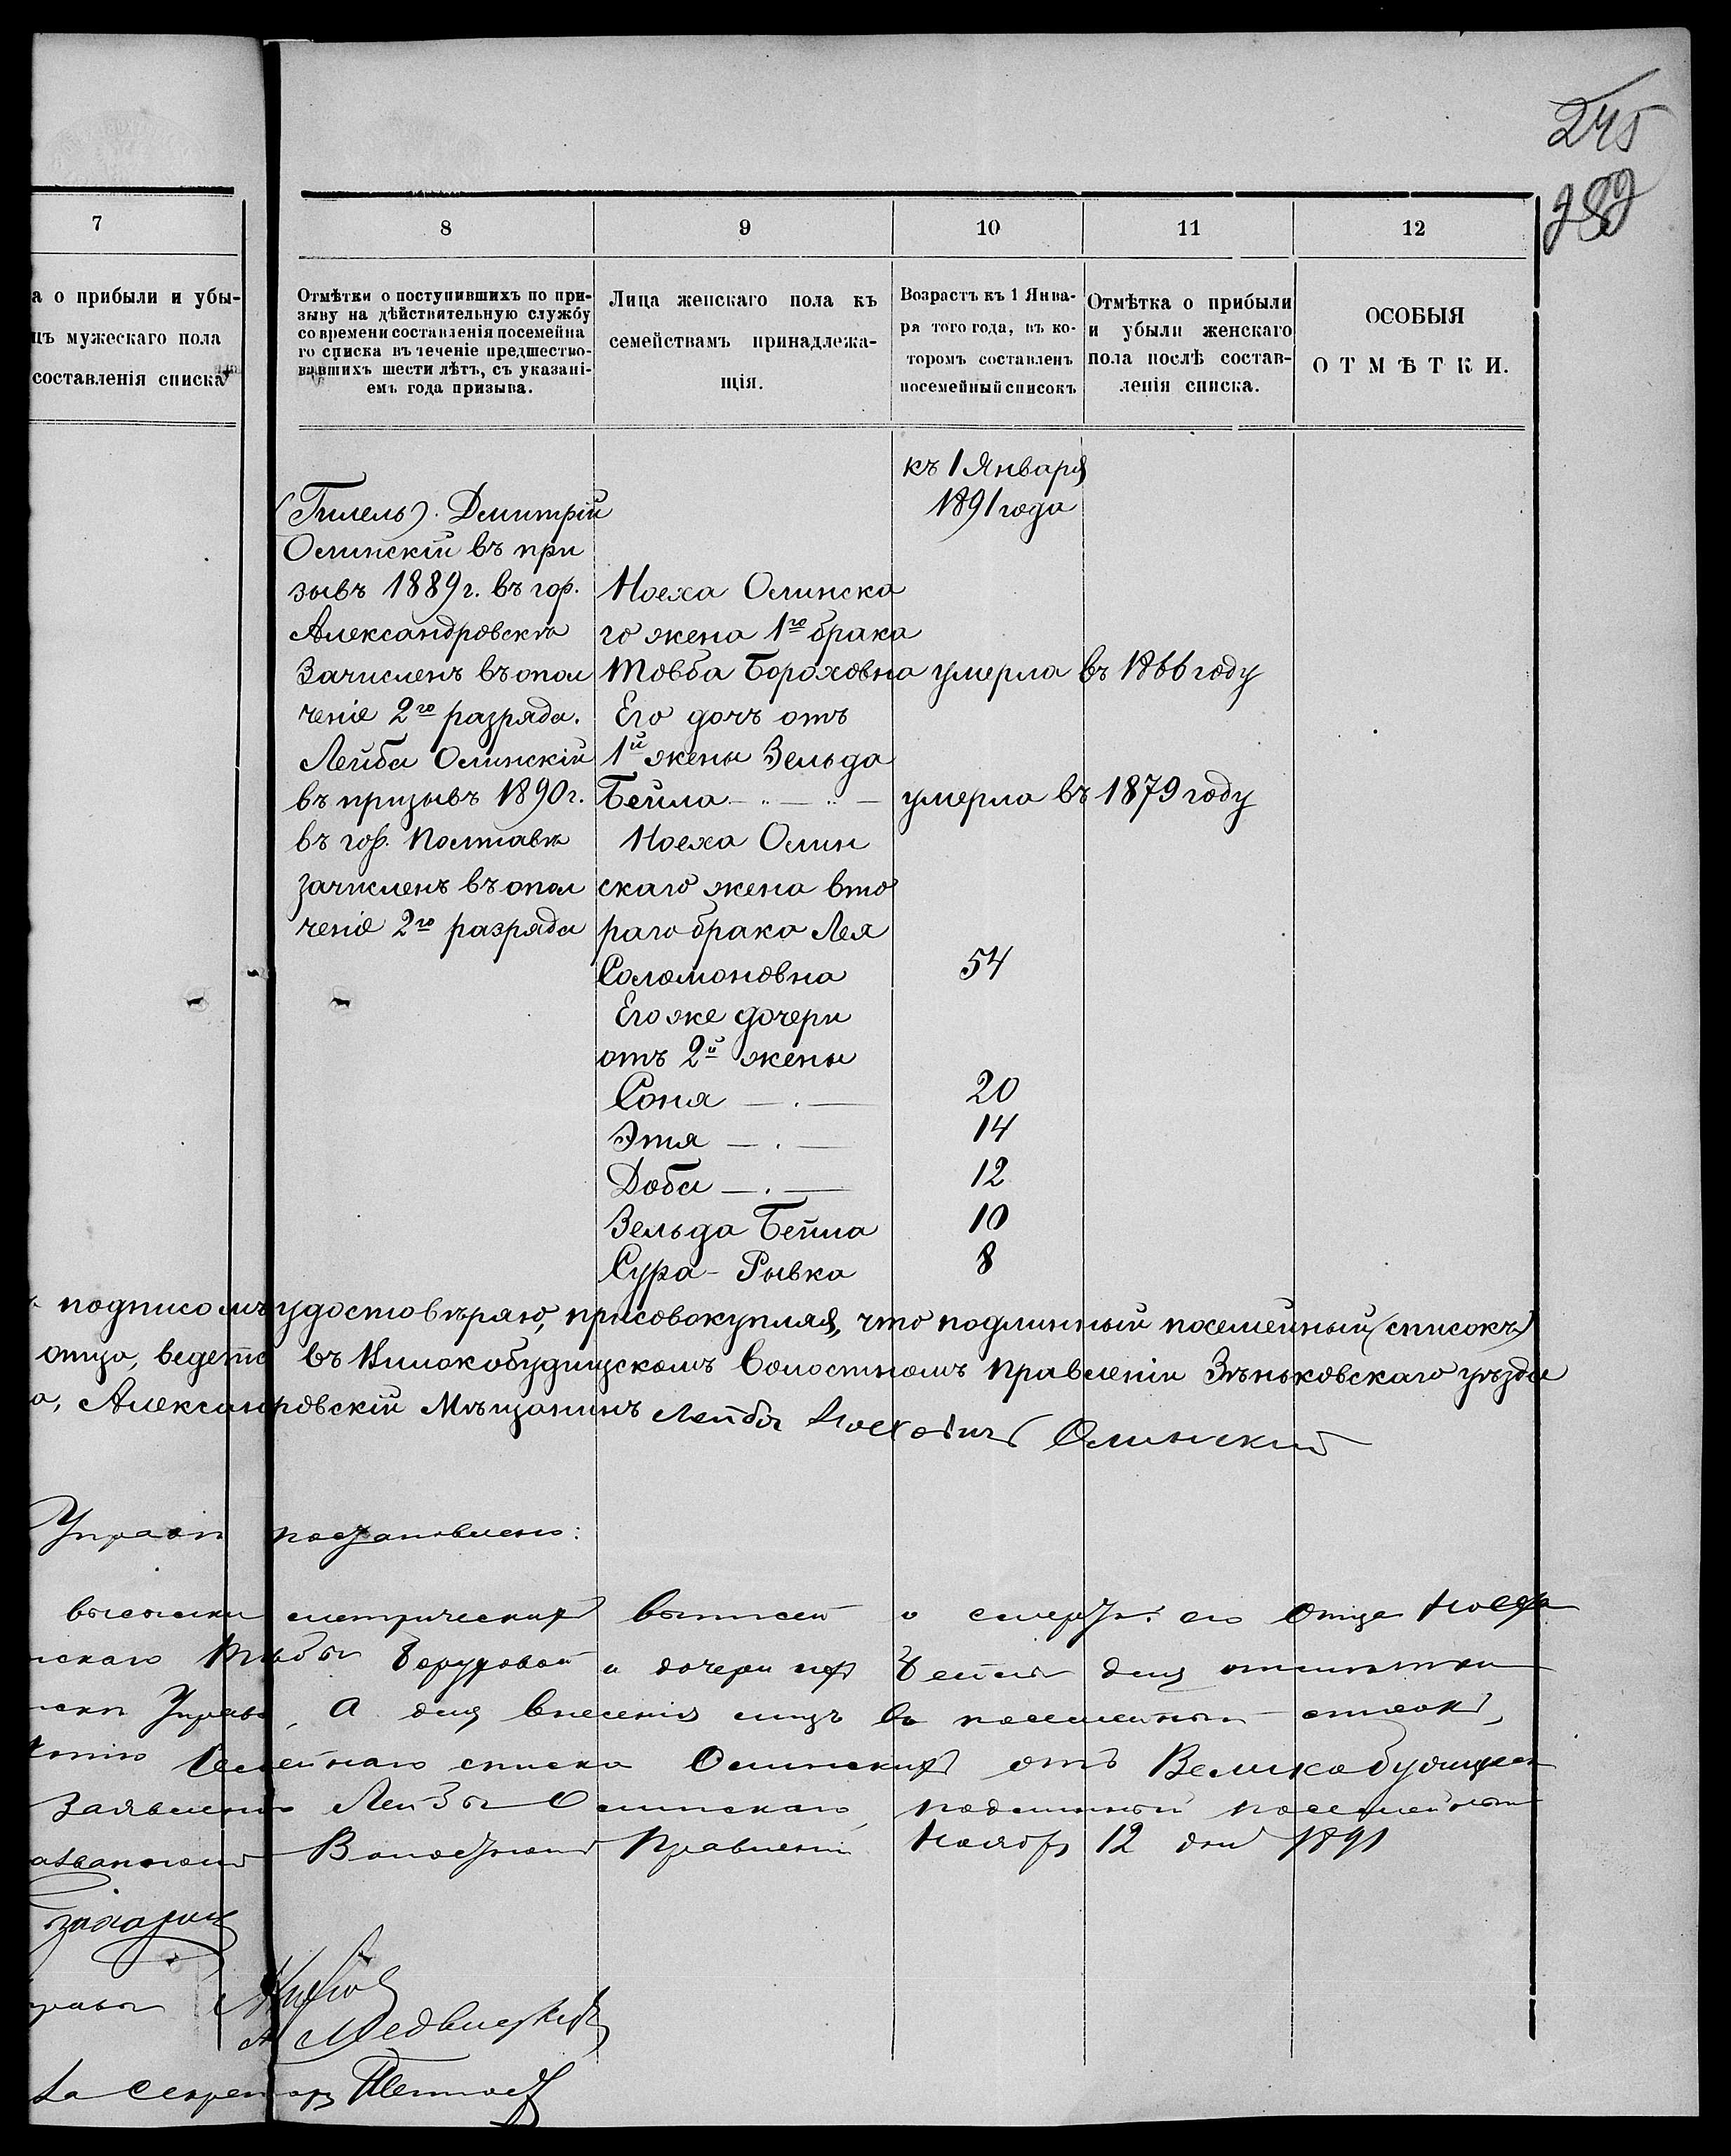 245
289
7
8
9
10
11
12
а о прибыли и убы-
цъ мужескаго пола
составленія списка
Отмѣтки о поступившихъ по при-
зыву на дѣйствительную службу
со времени составленія посемейна
го списка въ теченіе предшество-
вавшихъ шести лѣтъ, съ указані-
емъ года призыва.
Лица женскаго пола къ
семействамъ принадлежа-
щія.
Возрастъ къ 1 Янва-
ря того года, въ ко-
торомъ составленъ
посемейный списокъ
Отмѣтка о прибыли
и убыли женскаго
пола послѣ состав-
ленія списка.
ОСОБЫЯ
ОТМѢТКИ.
(Гилель). Дмитрій
Олинскій въ при
зывъ 1889 г. въ гор.
Александровскѣ
Зачисленъ въ опол
ченіе 2го разряда.
Лейба Олинскій
въ призывъ 1890 г.
въ гор. Полтавѣ
зачисленъ въ опол
ченіе 2го разряда
Ноеха Олинска
го жена 1го брака
Товба Бороховна
Его дочь отъ
1й жены Зельда
Бейла — " — " —
Ноеха Олин
скаго жена вто
раго брака Лея
Соломоновна
Его же дочери
отъ 2й жены
Соня — . —
Этя — . —
Доба — . —
Зельда Бейла
Сура - Рывка
къ 1 Января
1891 года
умерла въ 1866 году
умерла въ 1879 году
54
20
14
12
10
8
подписомъ удостовѣряю, присовокупляя, что подлинный посемейный (списокъ)
отца, ведется въ Виликобудищскомъ Волостномъ Правленіи Зѣньковскаго уѣзда
а, Александровскій Мѣщанинъ Лейба Ноеховичъ Олинский
Управы постановлено:
высылки метрическихъ выписей о смерти его Отца Ноеха
нскаго Товбы Боруховой и дочери ихъ Бейлы для отмѣтки
Управѣ, А для внесенія лицъ въ посемейный списокъ,
Копію Семейнаго списка Олинскихъ отъ Великобудищск
Заявленію Лейбы Олинскаго, подлинный посемейный
Волостномъ Правленіи. Ноября 12 дня 1891
А Медвѣдковъ
За Секретаря